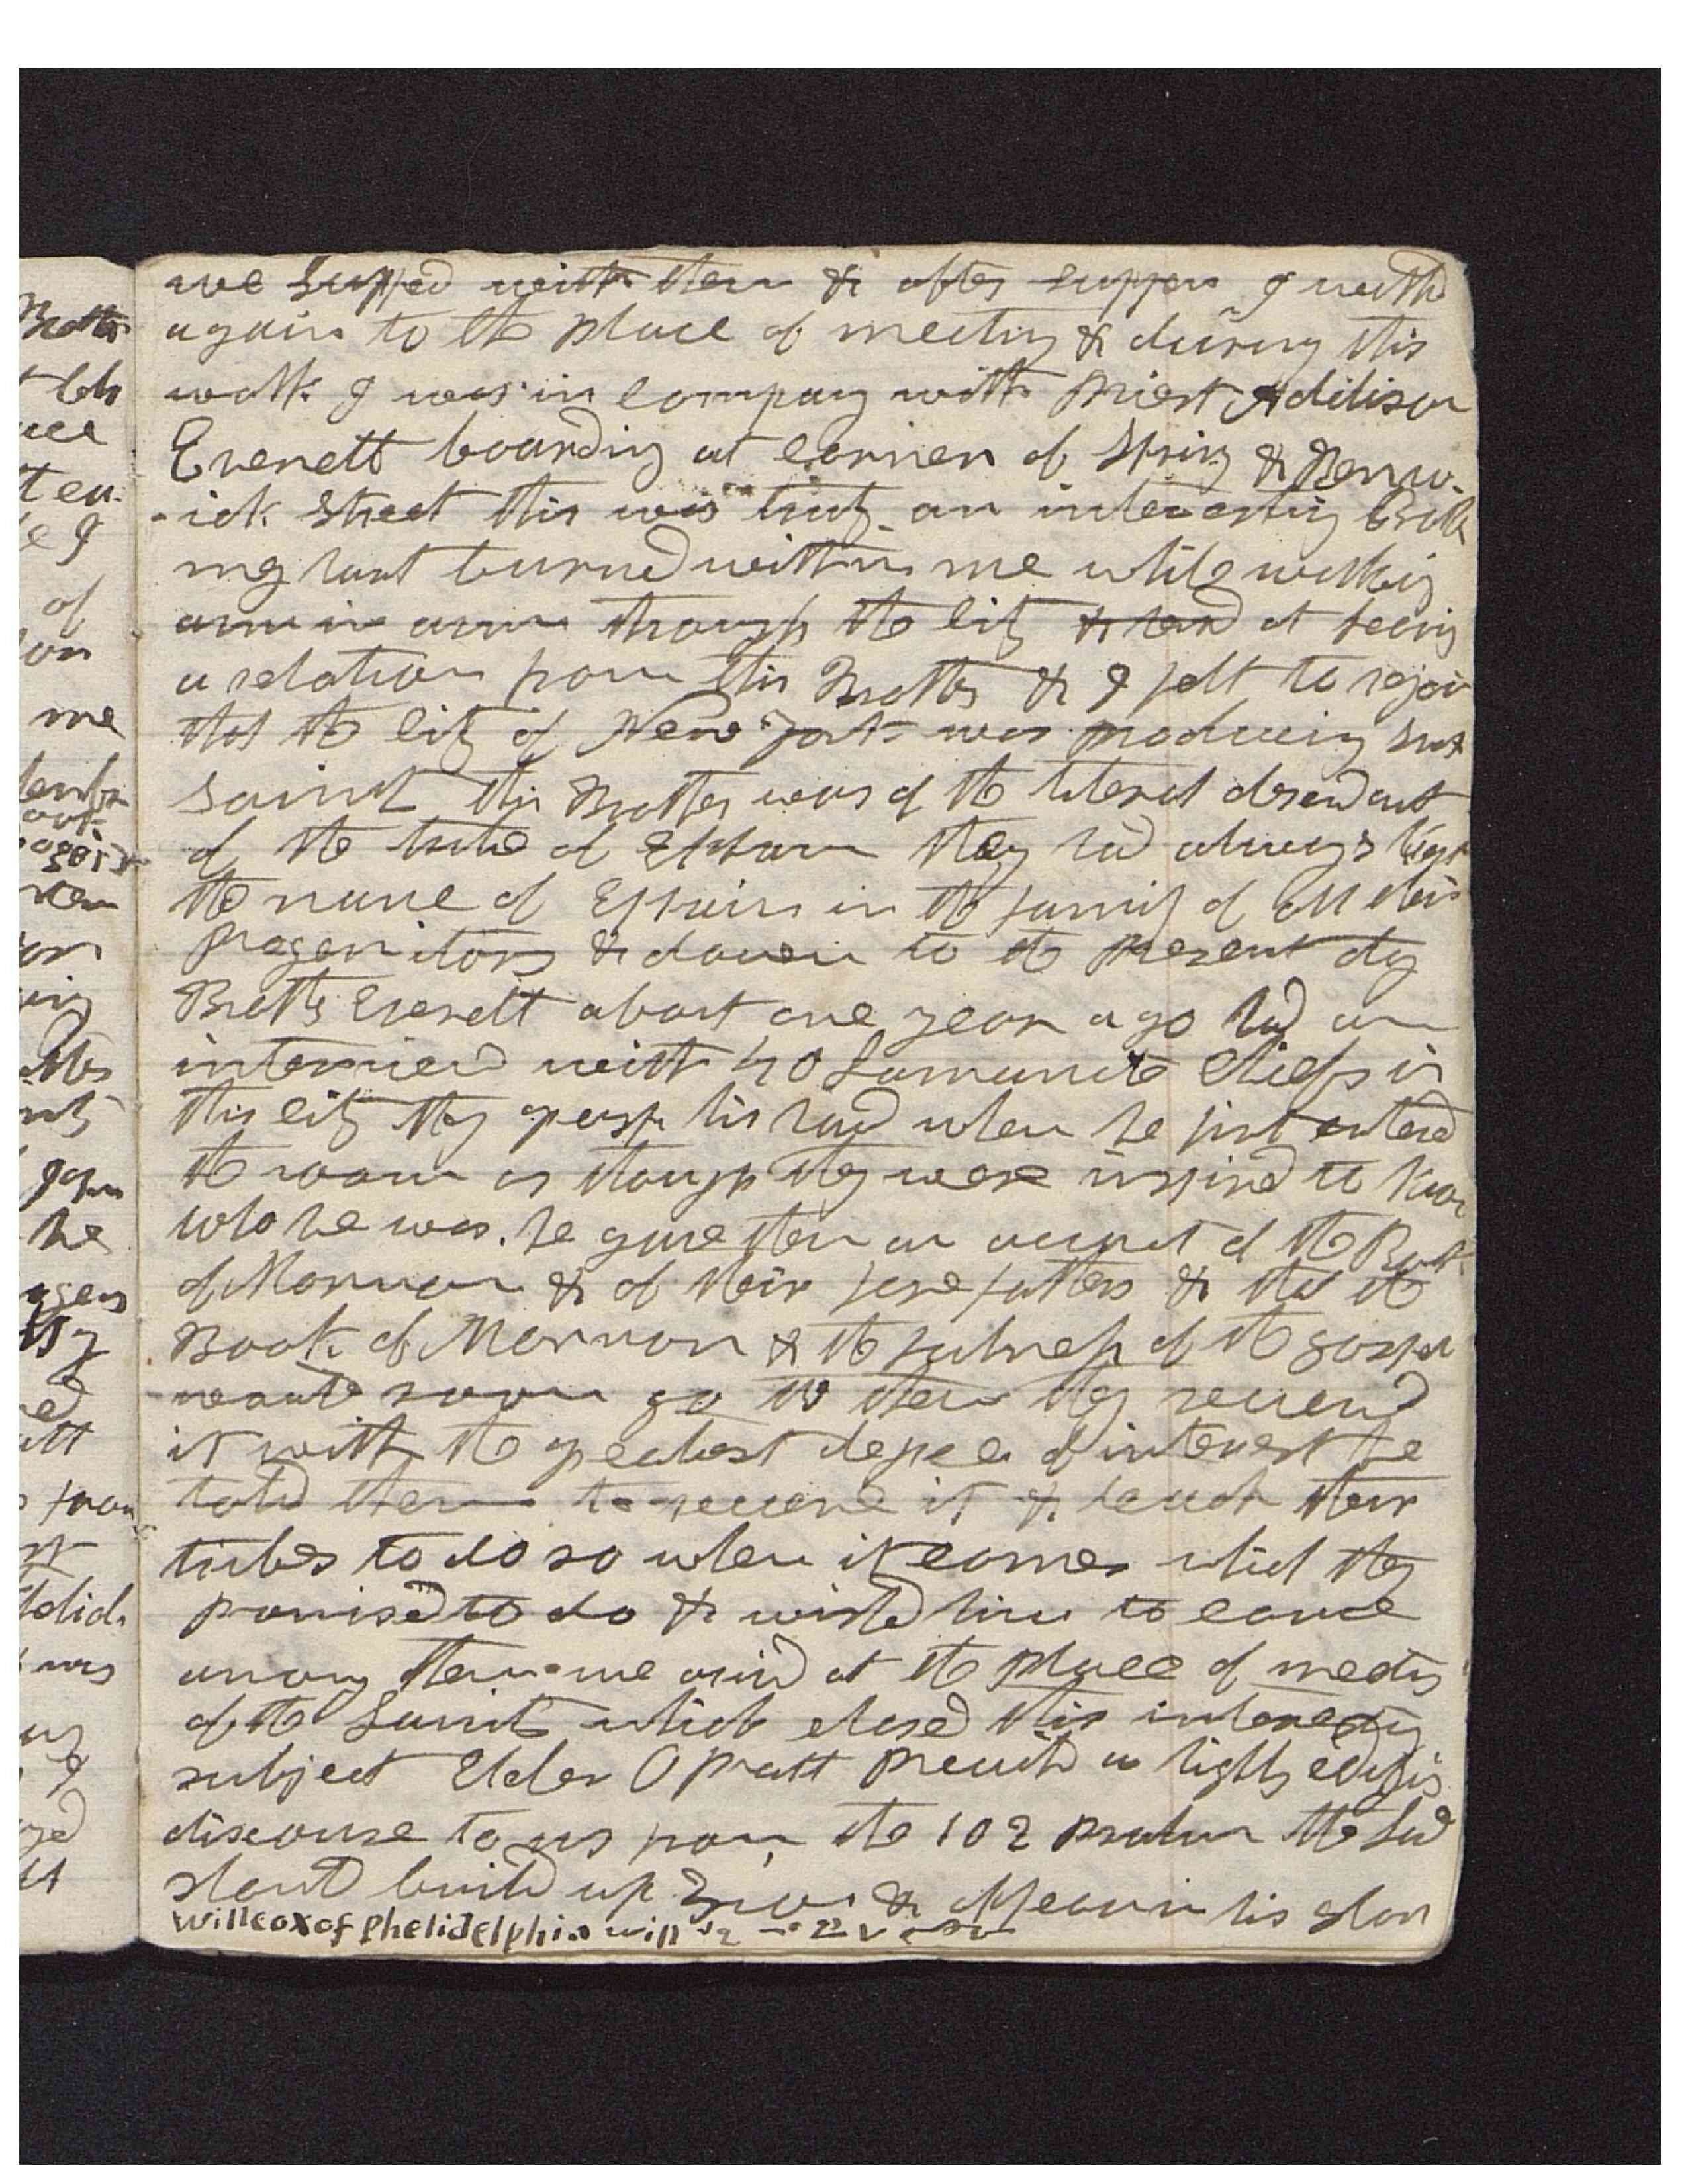 we supped with them & after supper I walkd
again to the place of meeting & during this
walk I was in company with Priest Addison
Everett boarding at corner of Spring & Renw-
-ick Street this was truly an interesting
my hart burned within me while walking
arm in arm through the city & heard at hearing
a relation from this Brother & I felt to rejoice
that the city of New York was producing such
Saints this Brother was of the literal descendant
of the tribe of Ephram they had always kept
the name of Ephraim in the family of all their
Progenitors & down to the present day
Brother Everett about one year ago had an
interview with 40 Lamanite Chiefs in
this city they grasp his hand when he first entered
the room as though they were inspired to know
who he was. he gave them an account of the Book
of Mormon & of their forefathers & that the
Book of Mormon & the fulness of the gospel
would soon go to them they received
it with the greatest degree of interest he
told them to receive it & teach their
tribes to do so when it comes which they
promised to do & wished him to come
among them we arived at the place of meeting
of the Saints which closed this interesting
subject Elder O Pratt preachd a highly edifying
discourse to us from the 102 Psalm the Lord
shall build up Zion & Appear in his glory
Willcox of Pheladelphia will
Brother
of
me
he
was